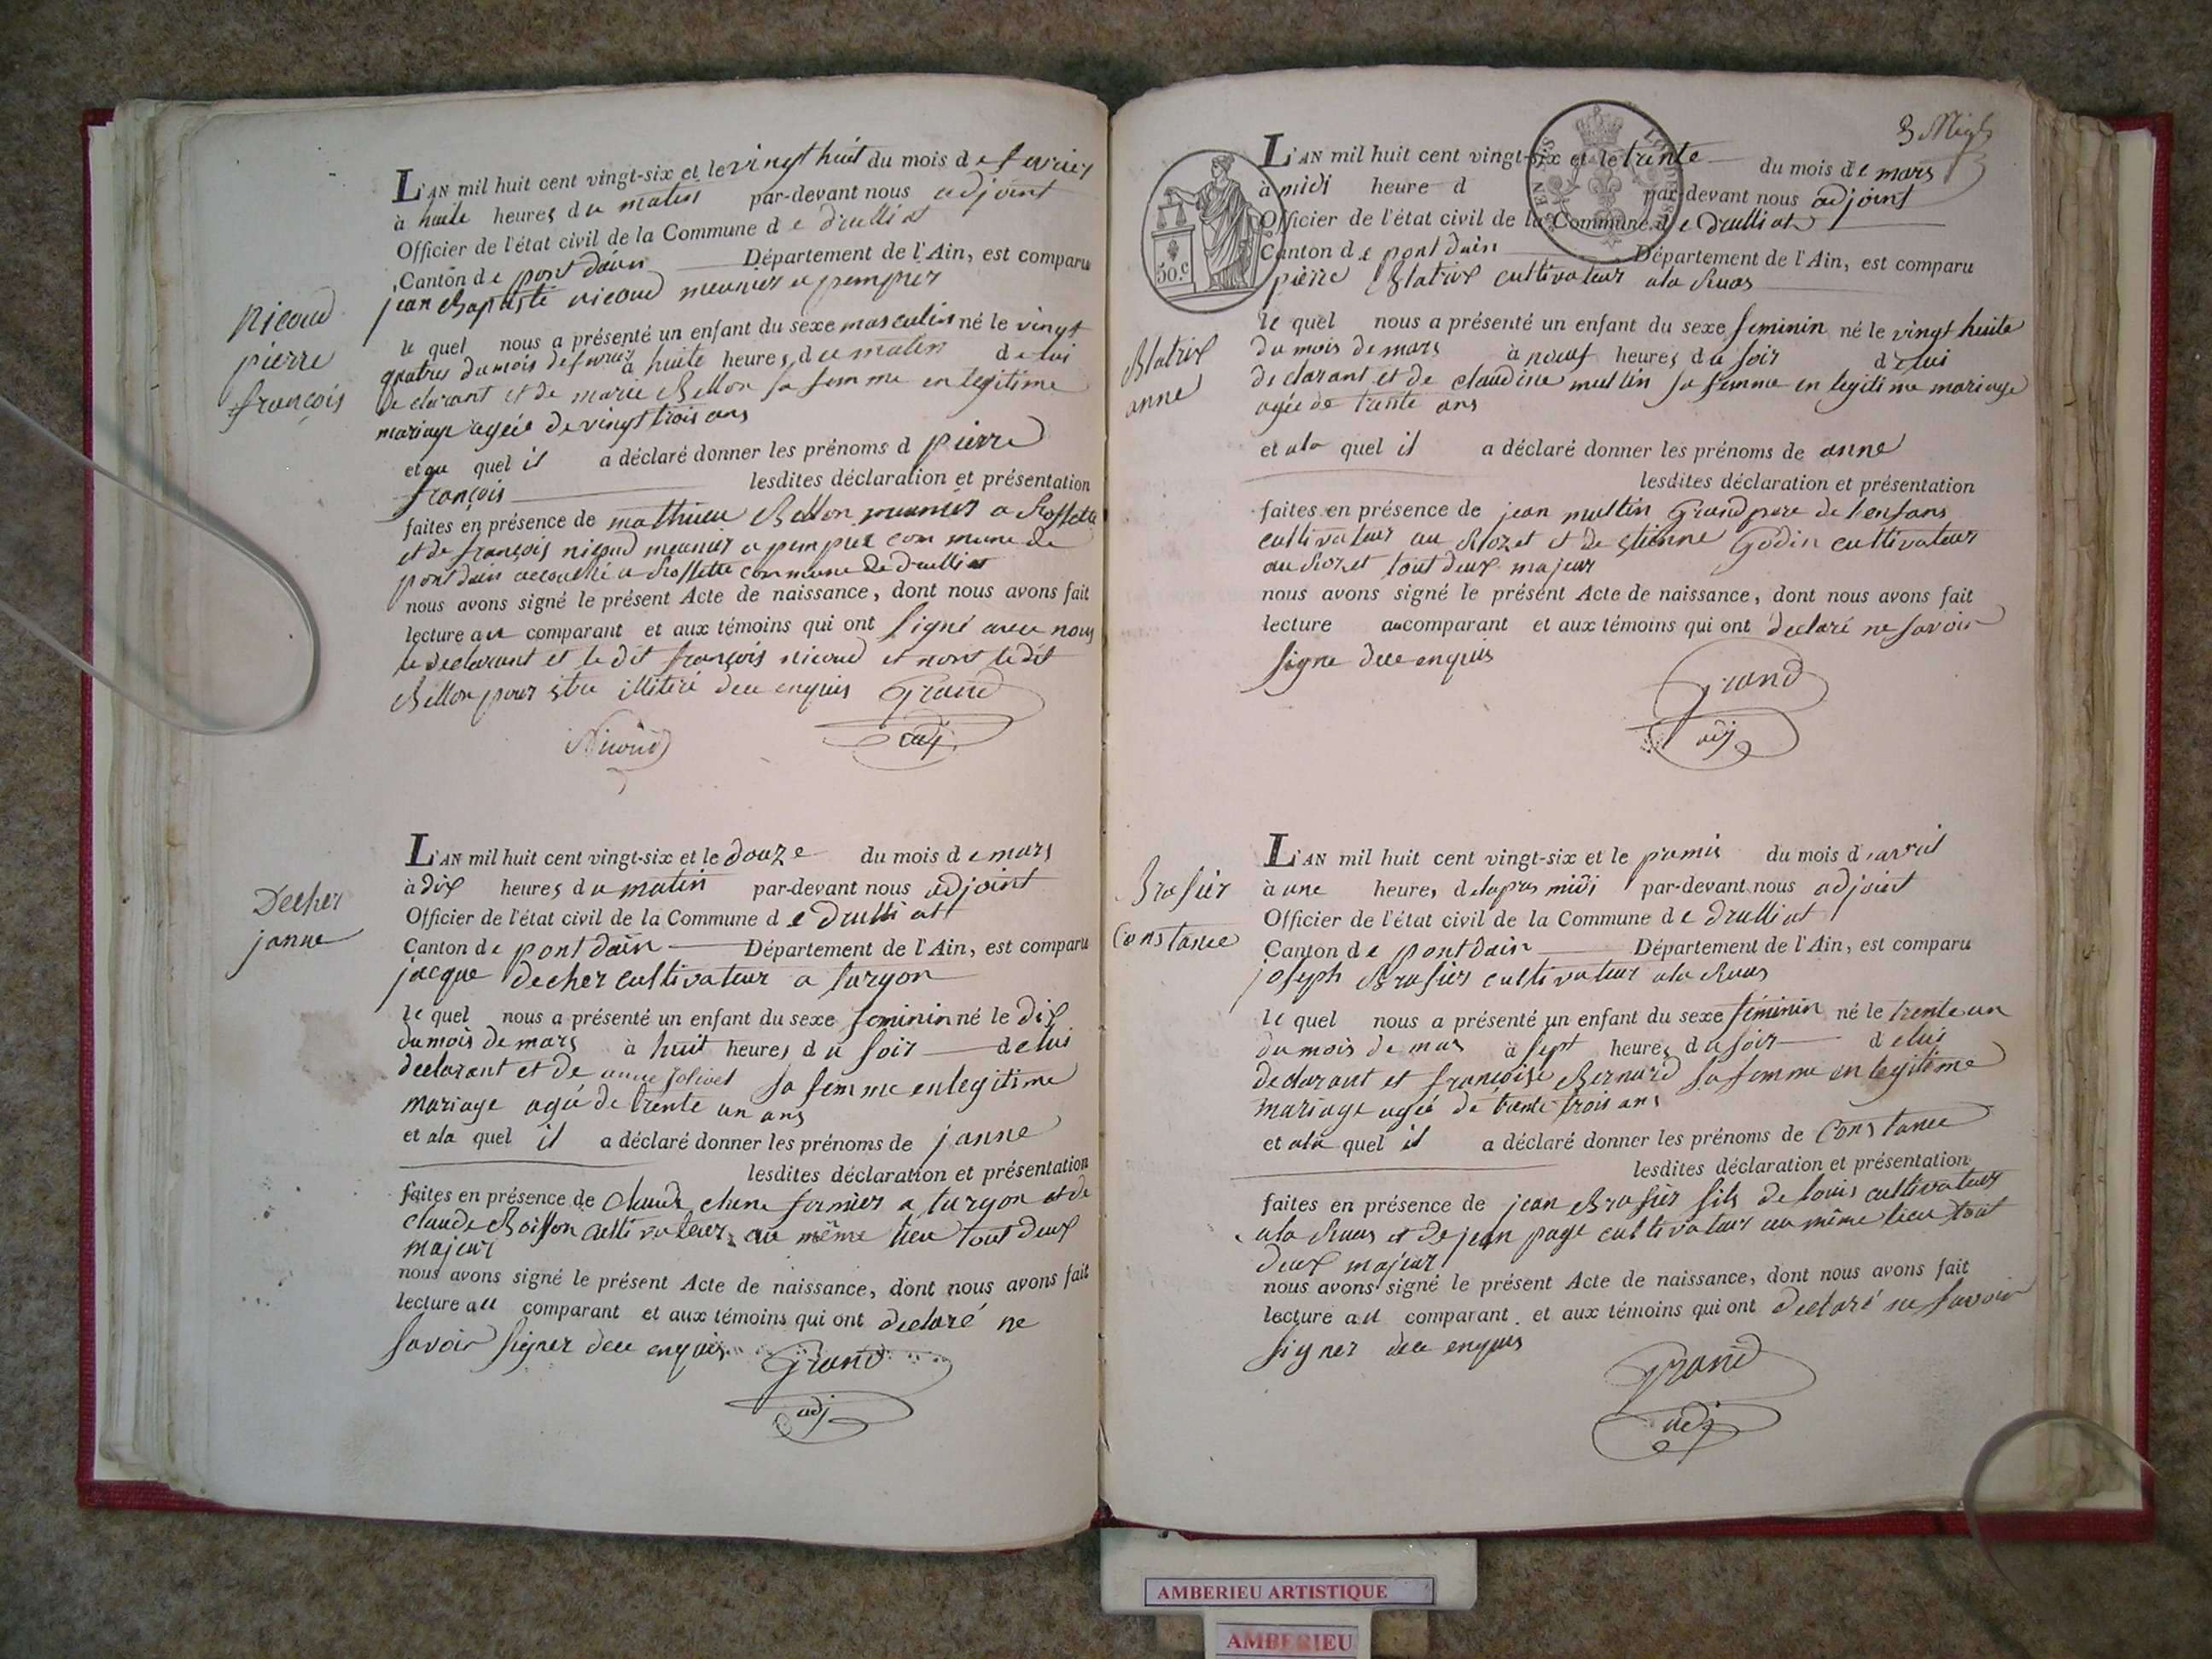 L'AN mil huit cent vingt-six et le vingt huit du mois de fevrier
à huite heures du matin par-devant nous adjoint
Officier de l'état civil de la Commune de druilliat
Canton de pont dain Département de l'Ain, est comparu
jean Baptiste nicoud meunier a pempier
Nicoud
pierre
françois
le quel nous a présenté un enfant du sexe masculin né le vingt
quatres du mois de fevrier à huite heures du matin de lui
declarant et de marie Bellon sa femme en legitime
mariage agée de vingt trois ans
et au quel il a déclaré donner les prénoms d pierre
françois lesdites déclaration et présentation
faites en présence de mathieu Bellon meunier a Rossette
et de françois nicoud meunier a pempie commune de
pont dain accouché a Rossette commune de druilliat
nous avons signé le présent Acte de naissance, dont nous avons fait
lecture au comparant et aux témoins qui ont signé avec nous
le declarant et le dit françois nicoud et nont le dit
Bellon pour être illitiré dece enquis Grand
Nicoud adj
L'AN mil huit cent vingt-six et le douze du mois de mars
à dix heures du matin par-devant nous adjoint
Officier de l'état civil de la Commune de Druilliat
Canton de pont dain Département de l'Ain, est comparu
jacque Decher cultivateur a turgon
Decher
janne
le quel nous a présenté un enfant du sexe feminin né le dix
du mois de mars à huit heures du soir de lui
declarant et de anne jolivet sa femme en legitime
mariage agé de trente un ans
et ala quel il a déclaré donner les prénoms de janne
lesdites déclaration et présentation
faites en présence de Claude chene fermier a turgon et de
claude Boisson cultivateur au même lieu tout deux
majeur
nous avons signé le présent Acte de naissance, dont nous avons fait
lecture au comparant et aux témoins qui ont declaré ne
savoir signer dece enquis Grand
adj
3
L'AN mil huit cent vingt-six et le trente du mois de mars
à midi heure d par-devant nous adjoint
Officier de l'état civil de la Commune de Druilliat
Canton de pont dain Département de l'Ain, est comparu
50.c
pierre Blatrix cultivateur ala Ruas
Blatrix
anne
le quel nous a présenté un enfant du sexe feminin né le vingt huite
du mois de mars à neuf heures du soir de lui
declarant et de claudine multin sa femme en legitime mariage
agée de trente ans
et ala quel il a déclaré donner les prénoms de anne
lesdites déclaration et présentation
faites en présence de jean multin Grand pere de lenfans
cultivateur au Rozet et de etienne Godin cultivateur
au Rozet tout deux majeur
nous avons signé le présent Acte de naissance, dont nous avons fait
lecture au comparant et aux témoins qui ont declaré ne savoir
signe dece enquis
Grand
adj
L'AN mil huit cent vingt-six et le premier du mois d avril
à une heures delapres midi par-devant nous adjoint
Officier de l'état civil de la Commune de Druilliat
Canton de pont dain Département de l'Ain, est comparu
joseph Brasier cultivateur ala Ruas
Brasier
Constance
le quel nous a présenté un enfant du sexe féminin né le trente un
du mois de mars à sept heures du soir de lui
declarant et françoise Bernard sa femme en legitime
mariage agée de trente trois ans
et ala quel il a déclaré donner les prénoms de Constance
lesdites déclaration et présentation
faites en présence de jean Brasier fils de louis cultivateur
ala Ruas et de jean page cultivateur au même lieu tout
deux majeur
nous avons signé le présent Acte de naissance, dont nous avons fait
lecture au comparant et aux témoins qui ont declaré ne savoir
signer dece enquis
Grand
adj
AMBERIEU ARTISTIQUE
AMBERIEU